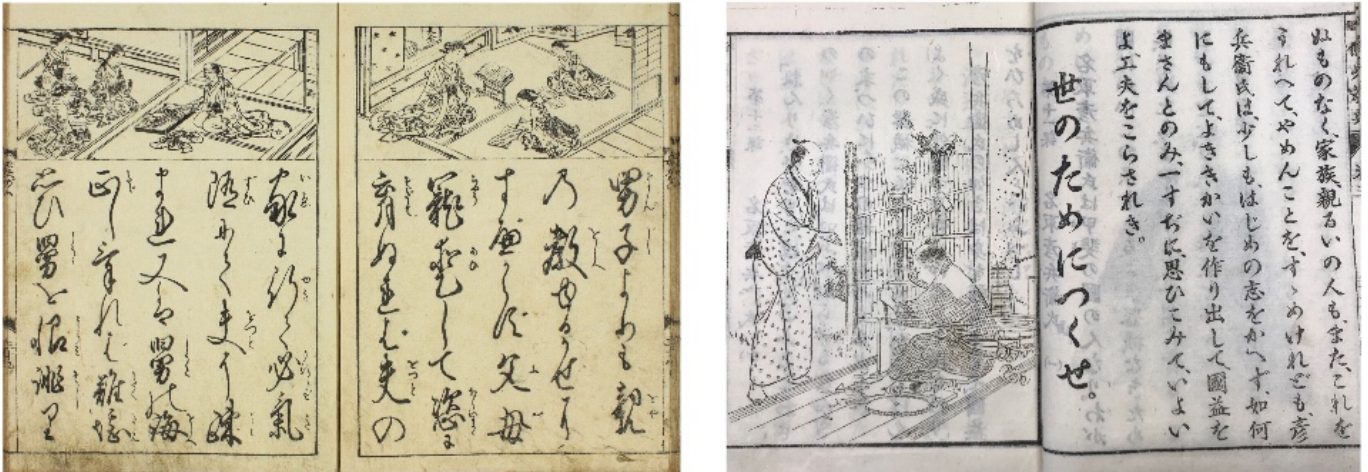 男子よりも親
乃教ゆるかせに
すべからず父母
寵愛して恣に
育ぬれは夫の
家に行て必氣
随にて夫に疎
まれ又は舅の誨
正しけれは難堪
思ひ舅を恨誹り
ぬものなく、家族親るいの人も、また、これを
うれへて、やめんことを、すゝめけれども、彦
兵衞氏は、少しも、はじめの志をかへず、如何
にもして、よききかいを作り出して、國益を
まさんとのみ、一すぢに思ひこみて、いよい
よ、工夫をこらされき。
世のためにつくせ。